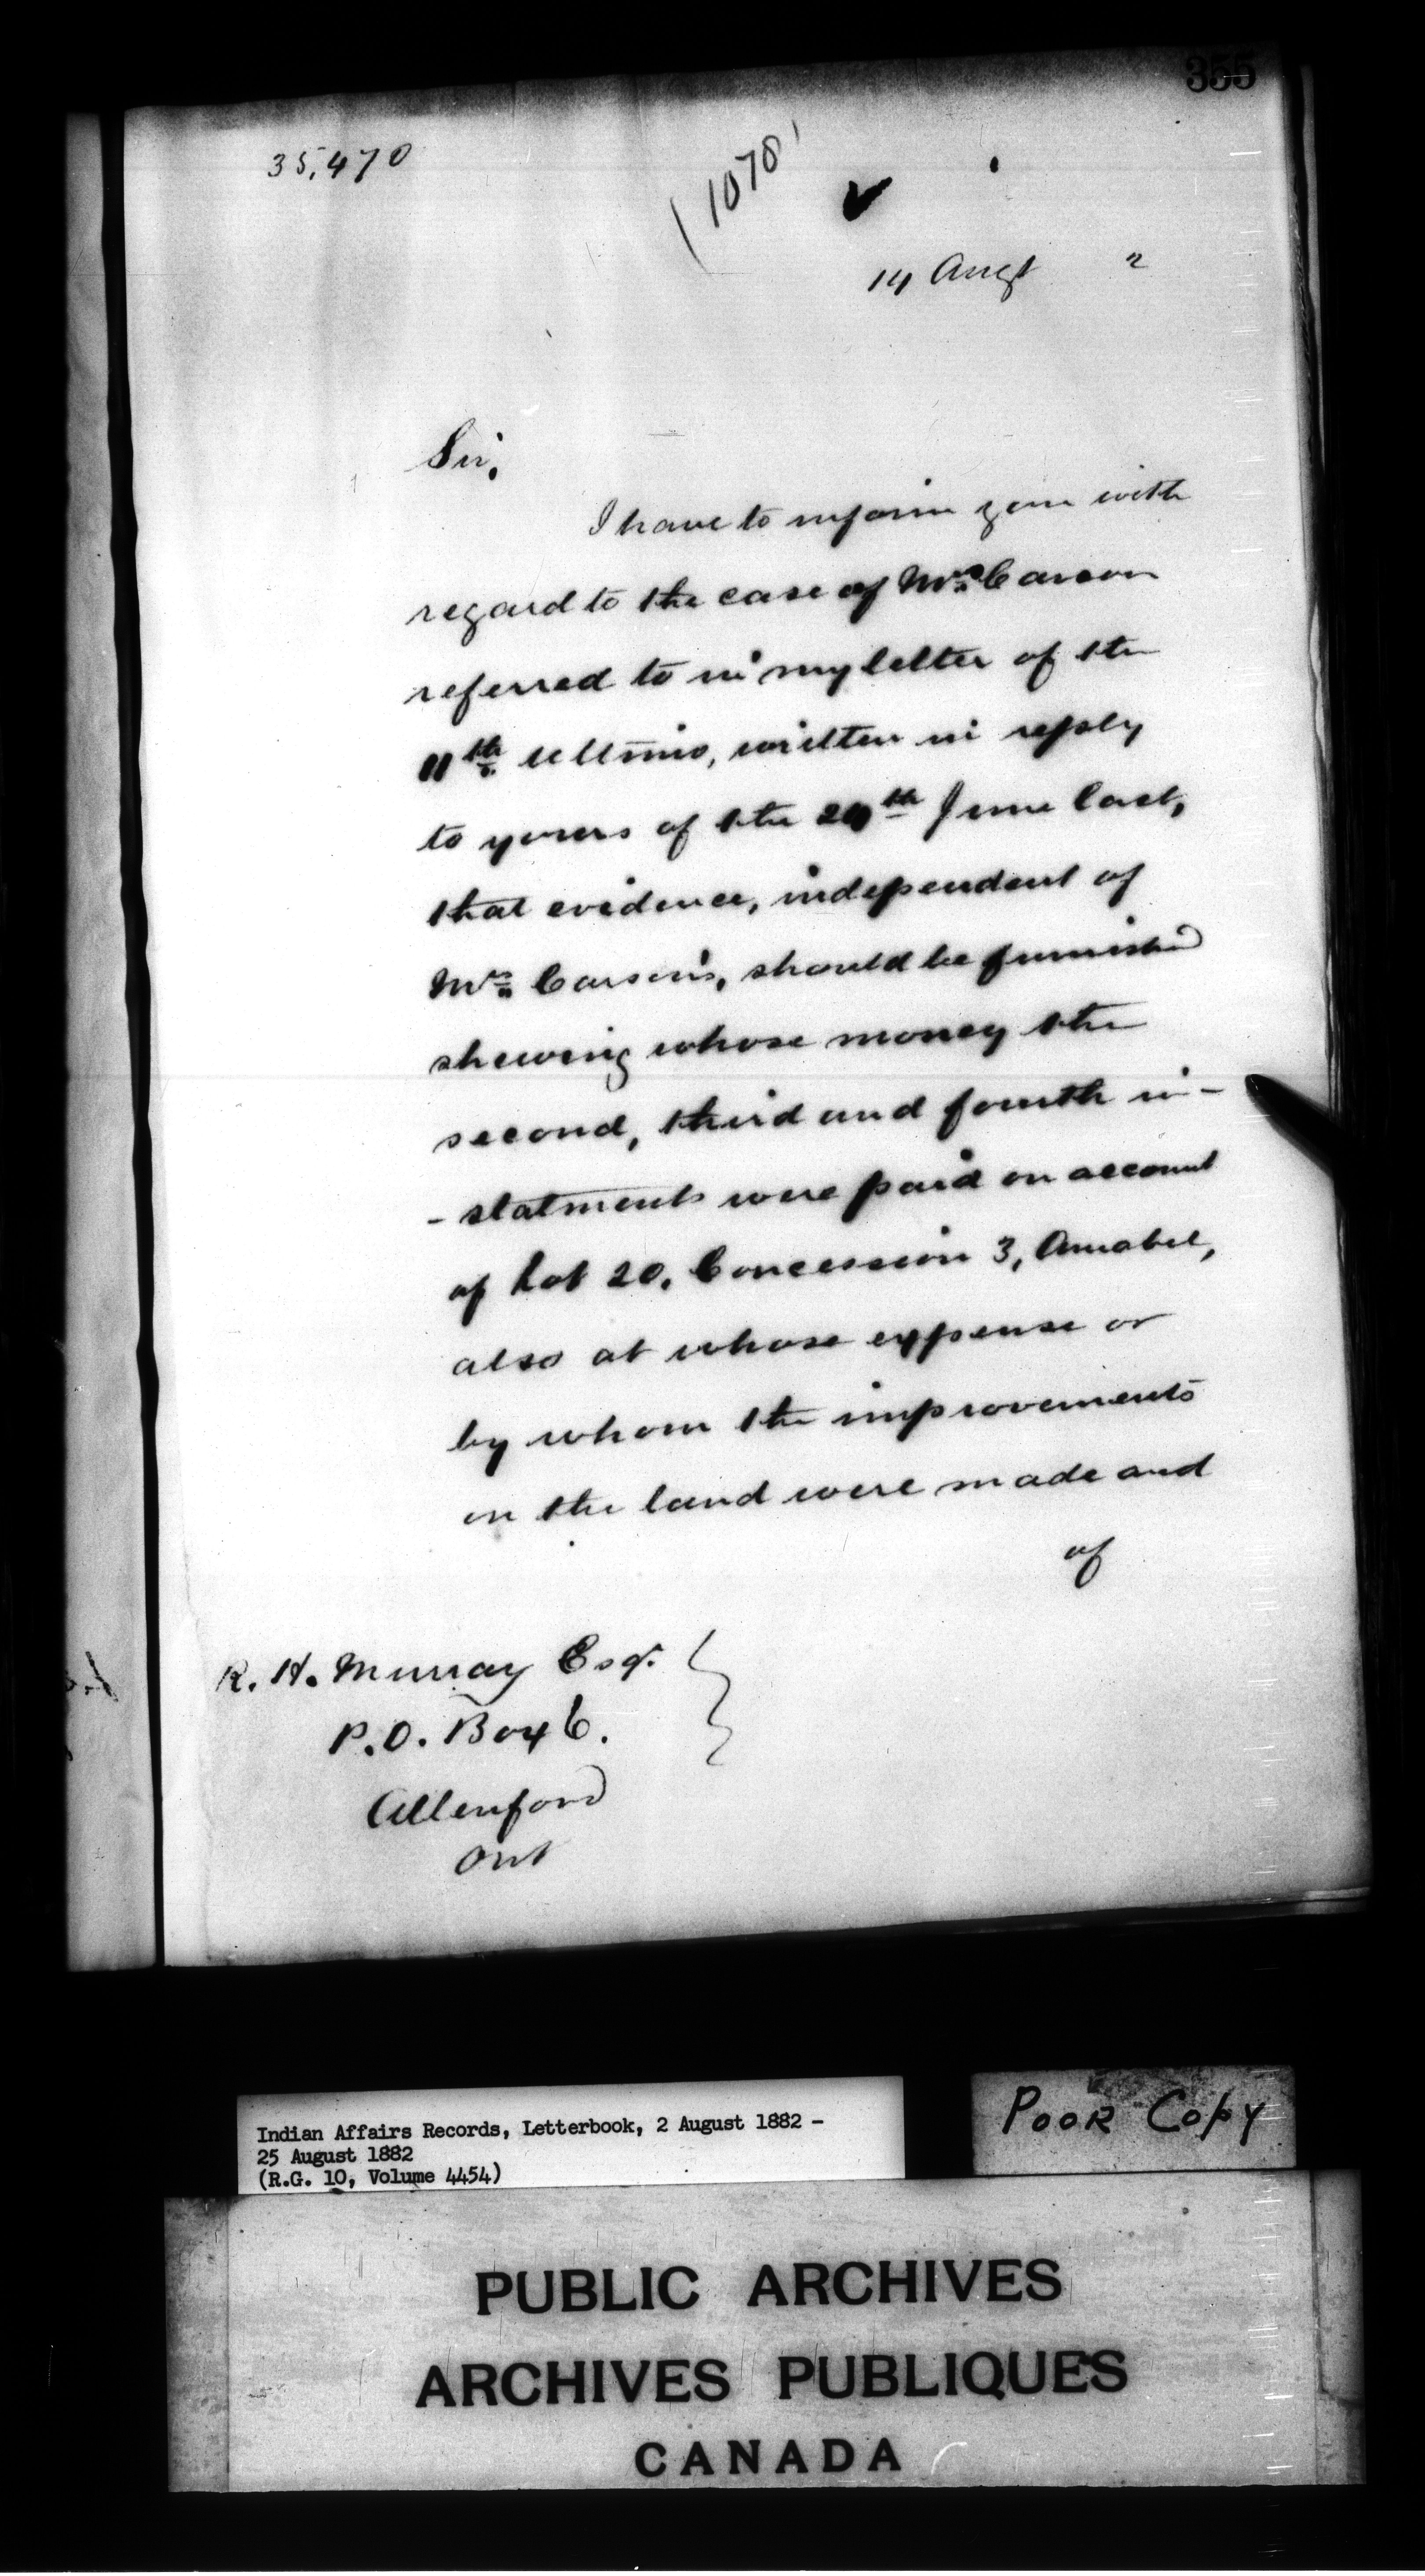 355
35,470
(1078)
14 Augt 2
Sir,
I have to inform you with
regard to the case of Mrs. Carson
referred to in my letter of the
11th ultimo, written in reply
to yours of the 24th June last,
that evidence, independent of
Mrs. Carson's, should be furnished
shewing whose money the
second, third and fourth in-
-statments were paid on account
of Lot 20, Concession 3, Amabel,
also at whose expense or
by whom the improvements
on the land were made and
of
R. H. Murray Esqr.
P.O. Box 6.
Allenford
Ont
Indian Affairs Records, Letterbook, 2 August 1882 -
25 August 1882
(R.G. 10, Volume 4454)
POOR COPY
PUBLIC ARCHIVES
ARCHIVES PUBLIQUES
CANADA